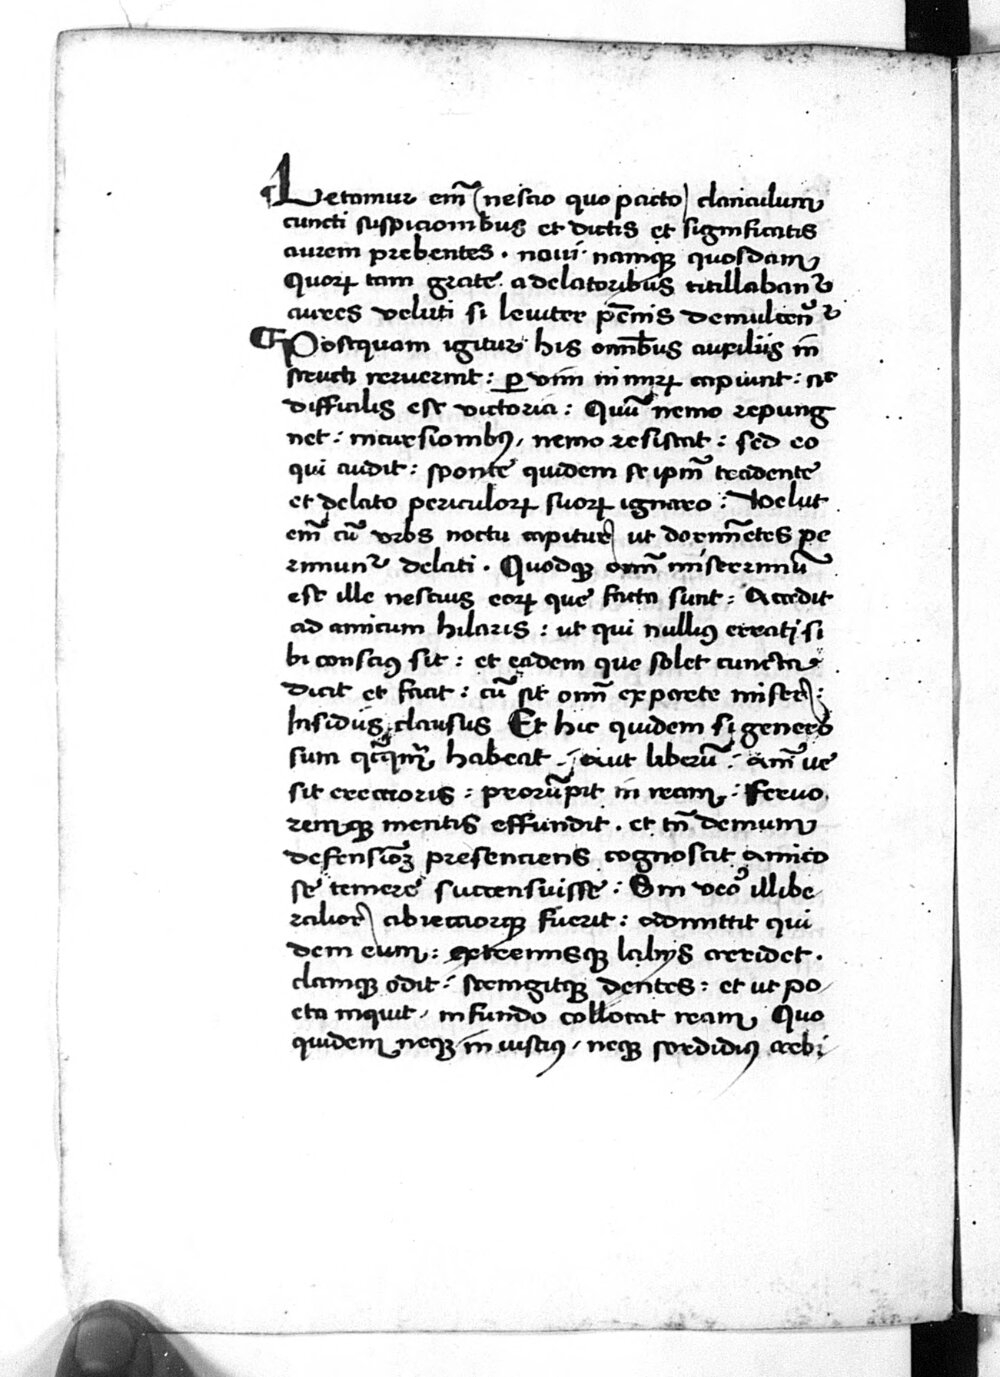 Letamur em̄ (nescio quo pacto) clanculum
cuncti suspicionibus et dictis et significatis
aurem prebentes. noui namqꝫ quosdam
Quoꝝ tam grate a delatoribus titillaban᷑
aures veluti si leuiter pēnis demulcen᷑
Posequam igitur his omībus auxiliis in
structi reruerint: ꝑ vim in capiunt: nec
difficilis est victoria: Quū nemo repung
net: incursionibꝰ, nemo resistat: sed eo
qui audit: sponte quidem se ipm̄ tradente
et delato periculoꝝ suoꝝ ignaro: Velut
em̄ cū vrbs noctu capitur) ut dormīētes pe
rimun᷑ delati. Quodqꝫ om̄ miserrimū
est ille nescius eoꝝ que facta sunt: Accedit
ad amicum hilaris: ut qui nulliꝰ errati si
bi consciꝰ sit: et eadem que solet cuncta
dicit et facit: cū sit om̄ ex parte miser):
Insidiis clausus Et hic quidem si genero
sum habeat. aut liberū: am̄ ve
sit erectioris: prorūpit in iram: feruo
remqꝫ mentis effundit. et tn̄ demum
defensioꝫ presenciens cognoscit amico
se temere succensuisse: Sin veo᷑ illibe
ralior) abiectiorqꝫ fuerit: admittit qui
dem eum: extremisqꝫ labijs arridet.
clamqꝫ odit: stringitqꝫ dentes: et ut po
eta inquit, in fundo collocat iram. Quo
quidem neqꝫ in iustiꝰ, neqꝫ sordidiꝰ arbi